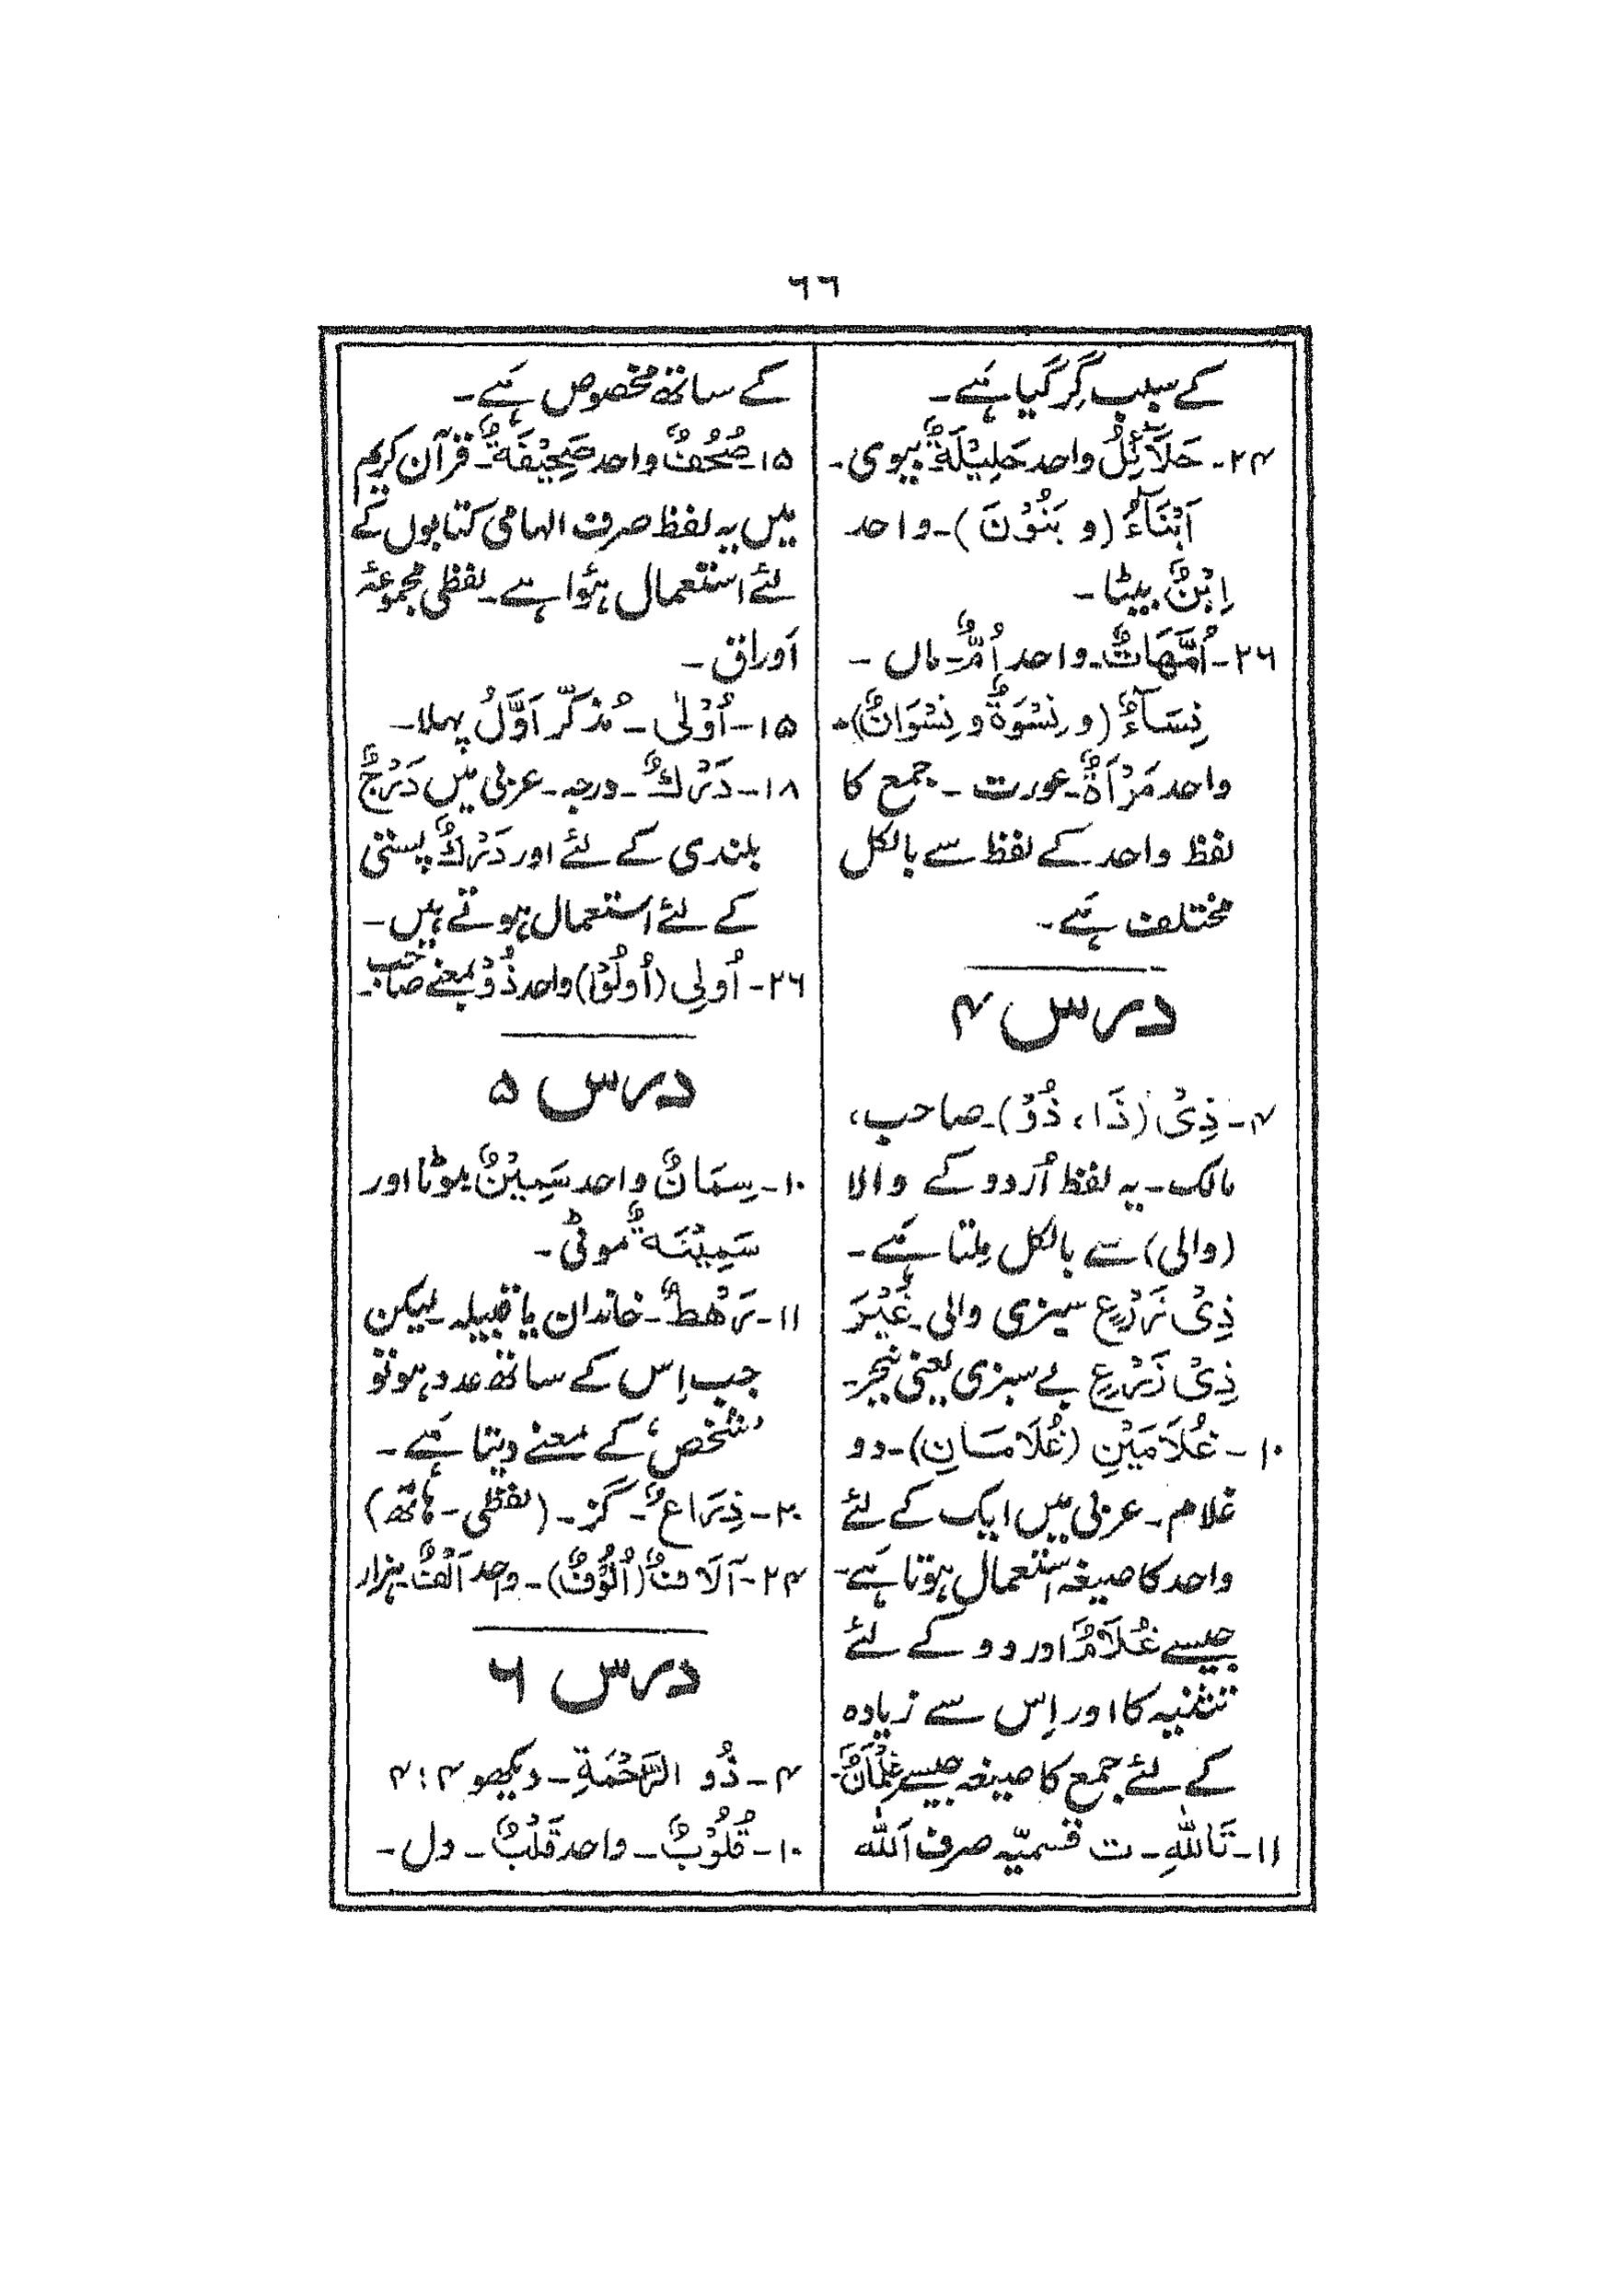 ٦٦
کے سبب گِر گیا ہَے۔
۲۴۔ حَلَآئِلُ واحد حَلِیْلَۃٌ بیوی۔
اَبْنَآءُ (و بَنُوْنَ)۔ واحد
اِبْنٌ بیٹا۔
۲۶۔ اُمَّھَاتٌ۔ واحد اُمٌّ۔ ماں ۔
نِسَآءٌ (و نِسْوَۃٌ و نِسْوَانٌ)۔
واحد مَرْاَۃٌ۔ عورت ۔ جمع کا
لفظ واحد کے لفظ سے بالکل
مختلف ہَے۔
درس ۴
۴۔ ذِیْ (ذَا ، ذُوْ)۔ صاحب،
مالک۔ یہ لفظ اُردو کے والا
(والی) سے بالکل مِلتا ہَے۔
ذِیْ زَرْعٍ سبزی والی۔ غَیْرَ
ذِیْ زَرْعٍ بے سبزی یعنی بنجر۔
۱۰۔ غُلَامَیْنِ (غُلَامَانِ)۔ دو
غلام۔ عربی میں ایک کے لئے
واحد کا صیغہ استعمال ہوتا ہَے۔
جیسے غُلَامٌ اور دو کے لئے
تثنیہ کا اور اِس سے زیادہ
کے لئے جمع کا صیغہ جیسے غِلْمَانٌ۔
۱۱۔ تَاللّٰہِ۔ ت قسمیّہ صرف اَللّٰہ
کے ساتھ مخصوص ہَے۔
۱۵۔ صُحُفٌ واحد صَحِیْفَۃٌ۔ قرآن کریم
میں یہ لفظ صرف الہامی کتابوں کے
لئے استعمال ہؤا ہے۔ لفظی مجموعۂ
اَوراق ۔
۱۵۔ اُوْلٰی ۔ مُذکّر اَوَّلُ پہلا۔
۱۸۔ دَرْکٌ۔ درجہ۔ عربی میں دَرْجٌ
بلندی کے لئے اور دَرْکٌ پستی
کے لئے استعمال ہوتے ہیں۔
۲۶۔ اُولِی (اُولُوْا) واحد ذُوْ بمعنے صاحب۔
درس ۵
۱۰۔ سِمَانٌ واحد سَمِیْنٌ موٹا اور
سَمِیْنَۃٌ موٹی۔
۱۱۔ رَھْطٌ۔ خاندان یا قبیلہ۔ لیکن
جب اِس کے ساتھ عدد ہو تو
’شخص‘ کے معنے دیتا ہَے۔
۲۰۔ ذِرَاعٌ۔ گز۔ (لفظی۔ ہاتھ)
۲۴۔ آلَافٌ (اُلُوْفٌ)۔ واحد اَلْفٌ۔ ہزار
درس ۶
۴۔ ذُو الرَّحْمَۃِ۔ دیکھو ۴:۴
۱۰۔ قُلُوْبٌ۔ واحد قَلْبٌ۔ دل۔